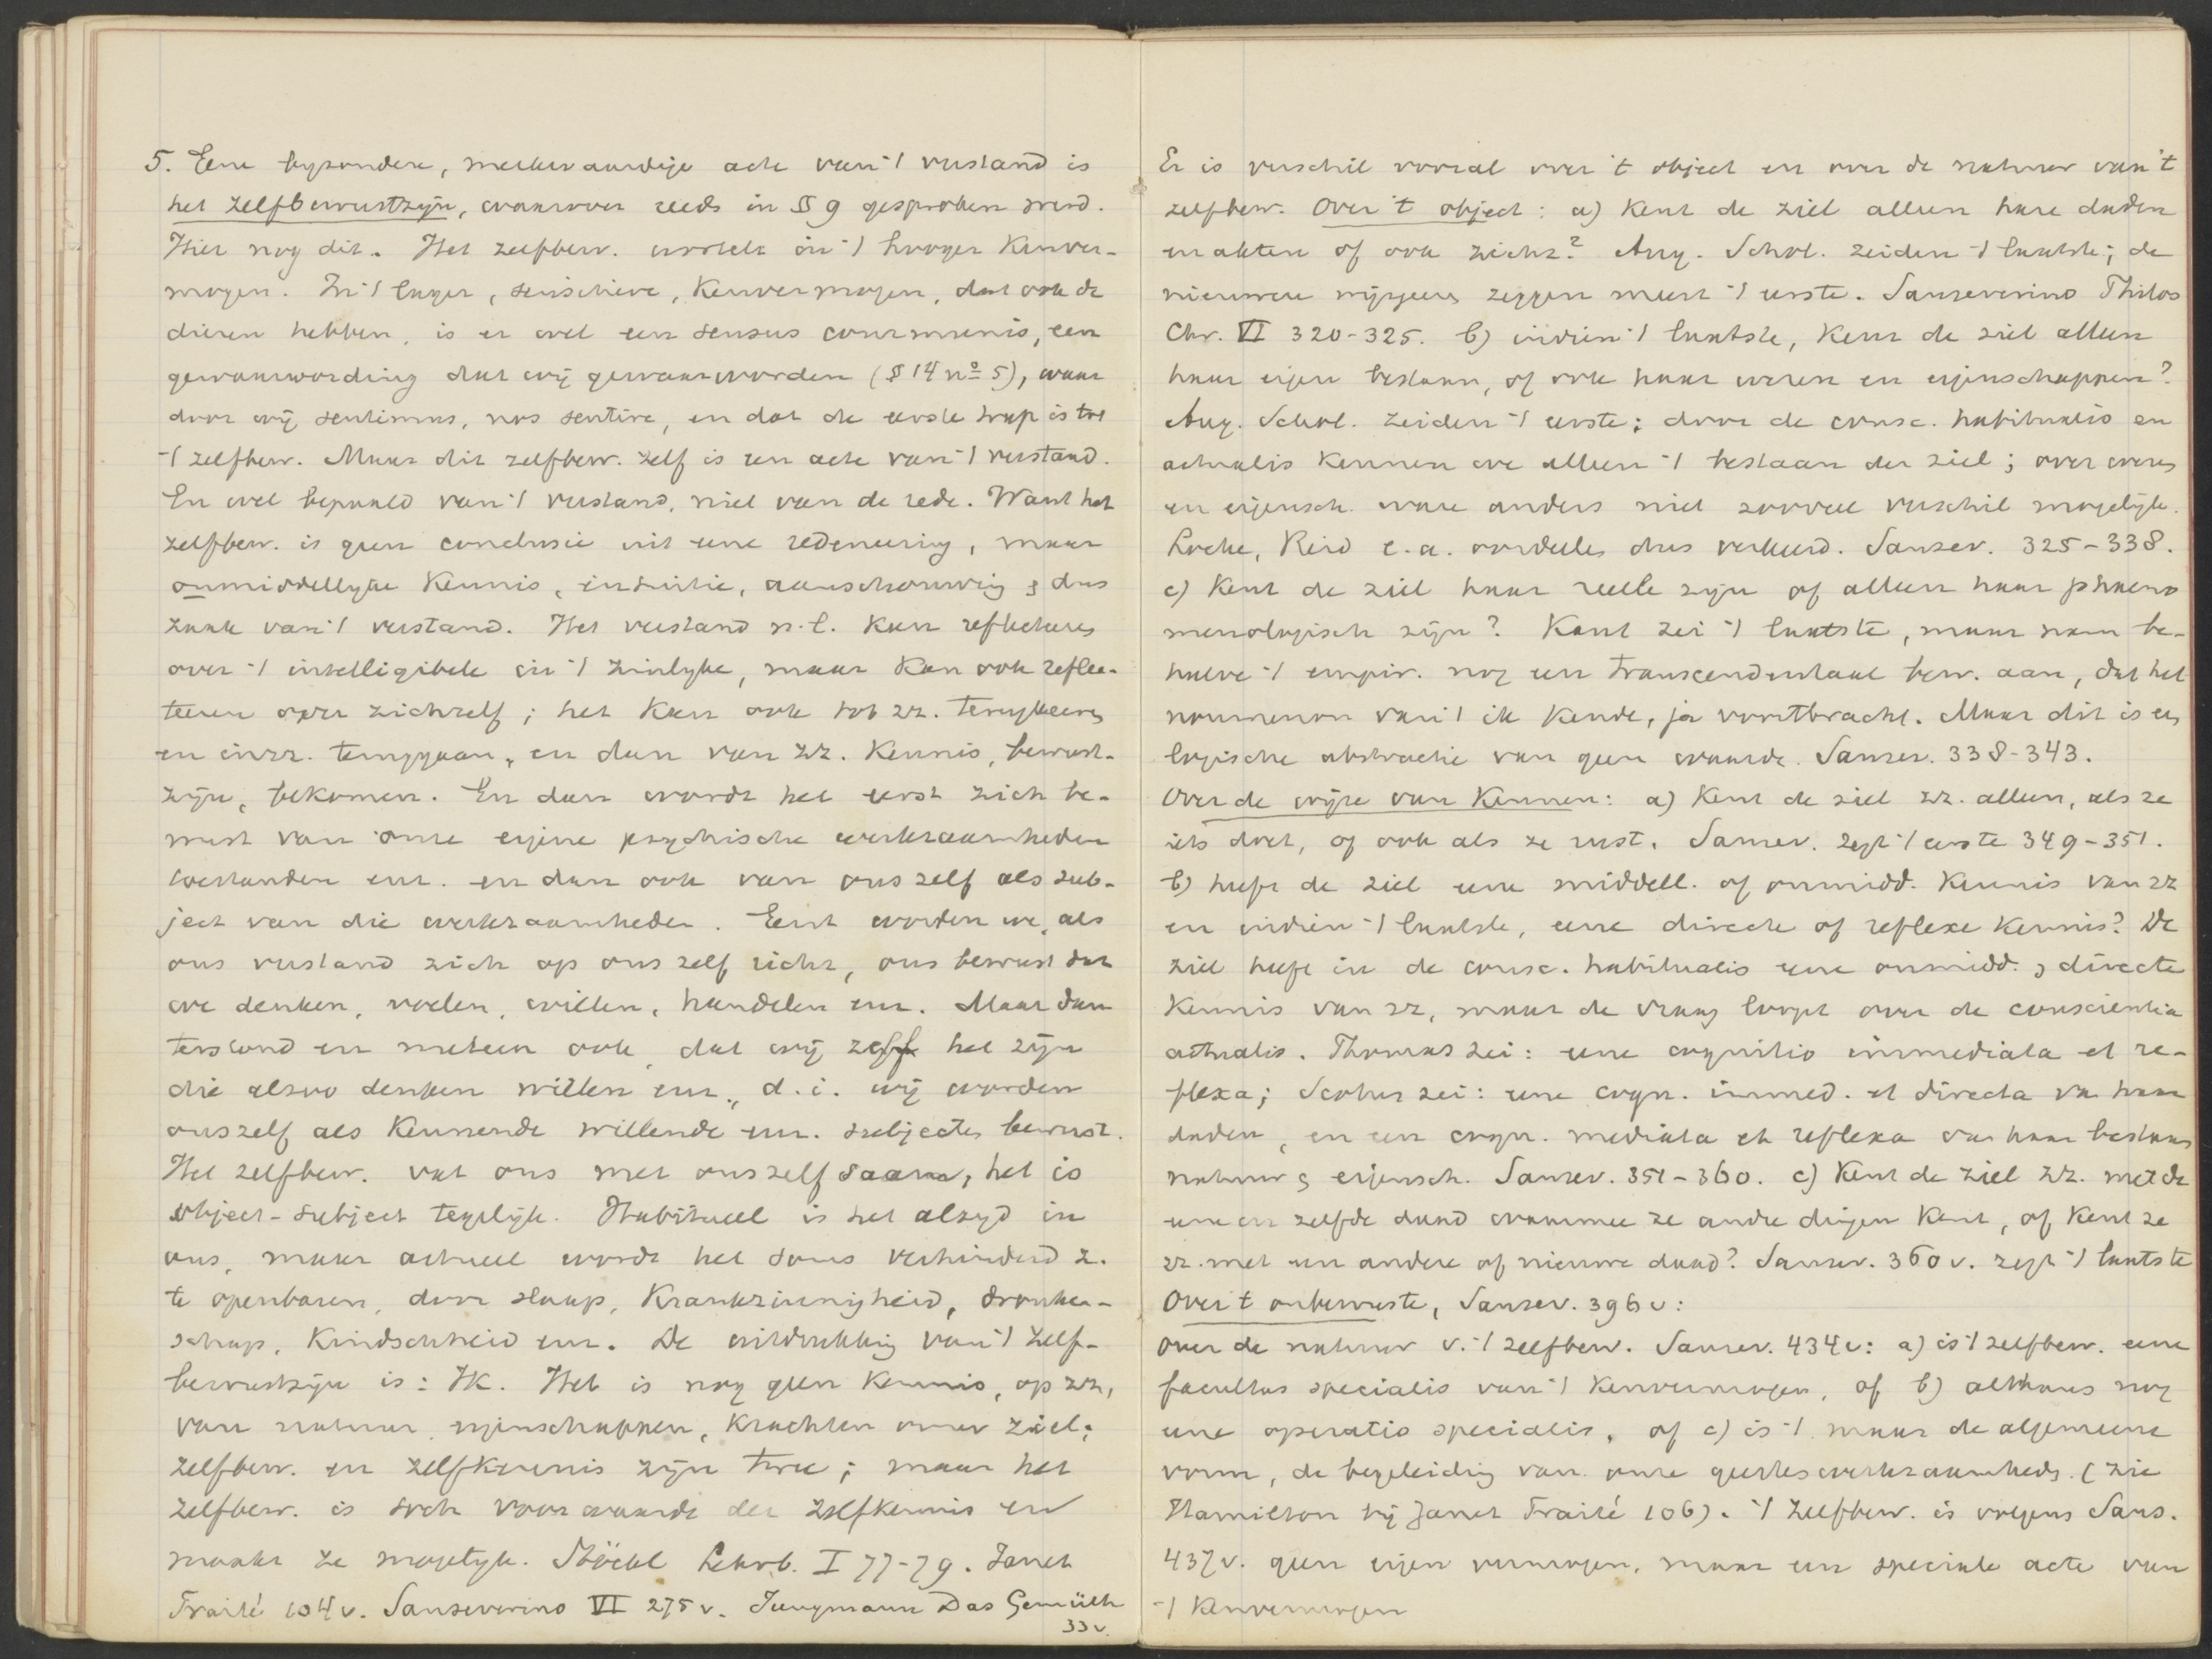 5. Eene byzondere, merkwaardige acte van 't verstand is
het zelfbewustzijn, waarover reeds in § 9 gesproken werd.
Hier nog dit. Het zelfbew. wortelt in 't hooger kenver-
mogen. In 't lager, sensitieve, kenvermogen, dat ook de
dieren hebben, is er wel een sensus communis, een
gewaarwording dat wij gewaarworden (§ 14 nº 5), waar
door wij sentimus, nos sentire, en dat de eerste trap is tot
't zelfbew. Maar dit zelfbew. zelf is een acte van 't verstand.
En wel bepaald van 't verstand, niet van de rede. Want het
zelfbew. is geen conclusie uit eene redeneering, maar
onmiddellyke kennis, intuitie, aanschouwing & dus
zaak van 't verstand. Het verstand n.l. kan reflecteeren
over 't intelligibele in 't zinlyke, maar kan ook reflec-
teeren over zichzelf; het kan ook tot zz. terugkeeren
en in zz. teruggaan, en dan van zz. kennis, bewust-
zijn, bekomen. En dan wordt het eerst zich be-
wust van onze eigene psychische werkzaamheden
toestanden enz. en dan ook van ons zelf als sub-
ject van die werkzaamheden. Eerst worden we, als
ons verstand zich op ons zelf richt, ons bewust dat
we denken, voelen, willen, handelen enz. Maar dan
terstond en meteen ook, dat wij zelf het zijn
die alzoo denken willen enz., d.i. wij worden
onszelf als kennende willende enz. subjecten bewust.
Het zelfbew. vat ons met onszelf saam, het is
object-subject tegelijk. Habitueel is het altyd in
ons, maar actueel wordt het soms verhinderd z.
te openbaren, door slaap, krankzinnigheid, dronken-
schap, kindschheid enz. De uitdrukking van 't zelf-
bewustzijn is: Ik. Het is nog geen kennis, op zz.,
van natuur, eigenschappen, krachten onzer ziel;
zelfbew. en zelfkennis zijn twee; maar het
zelfbew. is toch voorwaarde der zelfkennis en
maakt ze mogelyk. Stöckl Lehrb. I 77-79. Janet
Traité 104 v. Sanseverino VI 275 v. Jungmann Das Gemüth
33 v.
Er is verschil vooral over 't object en over de natuur van 't
zelfbew. Over 't object: a) kent de ziel alleen hare daden
en akten of ook zichz? Aug. Schol. zeiden 't laatste; de
nieuwere wijsgeeren zeggen meest 't eerste. Sanseverino Philos
Chr. VI 320-325. b) indien 't laatste, kent de ziel alleen
haar eigen bestaan, of ook haar wezen en eigenschappen?
Aug. Schol. zeiden 't eerste; door de consc. habitualis en
actualis kennen we alleen 't bestaan der ziel; over wezen
en eigensch. ware anders niet zooveel verschil mogelijk.
Locke, Reid e.a. oordeelen dus verkeerd. Sansev. 325-338.
c) Kent de ziel haar reëele zijn of alleen haar phaeno
menologisch zijn? Kant zei 't laatste, maar nam be-
halve 't empir. nog een transcendentaal bew. aan, dat het
noumenon van 't ik kende, ja voortbracht. Maar dit is een
logische abstractie van geen waarde. Sansev. 338-343.
Over de wijze van kennen: a) Kent de ziel zz. alleen, als ze
iets doet, of ook als ze rust. Sansev. zegt 't eerste 349-351.
b) heeft de ziel eene middell. of onmidd. kennis van zz
en indien 't laatste, eene directe of reflexe kennis? De
ziel heeft in de consc. habitualis eene onmidd. & directe
kennis van zz, maar de vraag loopt over de conscientia
actualis. Thomas zei: eene cognitio immediata et re-
flexa; Scotus zei: eene cogn. immed. et directa van hare
daden, en een cogn. mediata et reflexa van haar bestaan
natuur & eigensch. Sansev. 351-360. c) Kent de ziel zz. met de
eene en zelfde daad waarmee ze andre dingen kent, of kent ze
zz. met een andere of nieuwe daad? Sansev. 360 v. zegt 't laatste
Over 't onbewuste, Sansev. 396 v:
over de natuur v. 't zelfbew. Sansev. 434 v: a) is 't zelfbew. eene
facultas specialis van 't kenvermogen, of b) althans nog
eene operatio specialis, of c) is 't maar de algemeene
vorm, de begeleiding van onze geesteswerkzaamheden. (zie
Hamilton bij Janet Traité 106). 't Zelfbew. is volgens Sans.
437 v. geen eigen vermogen, maar een speciale acte van
't kenvermogen